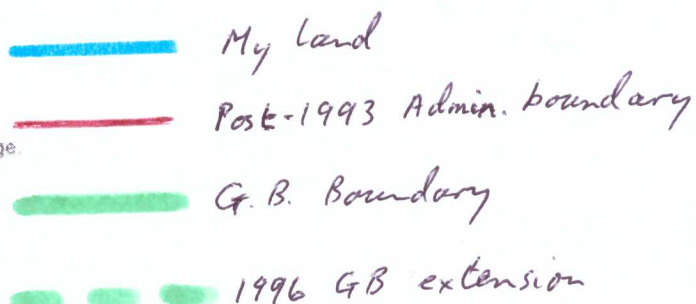 My land
Post-1993 Admin. boundary
G.B. Boundary
1996 GB extension